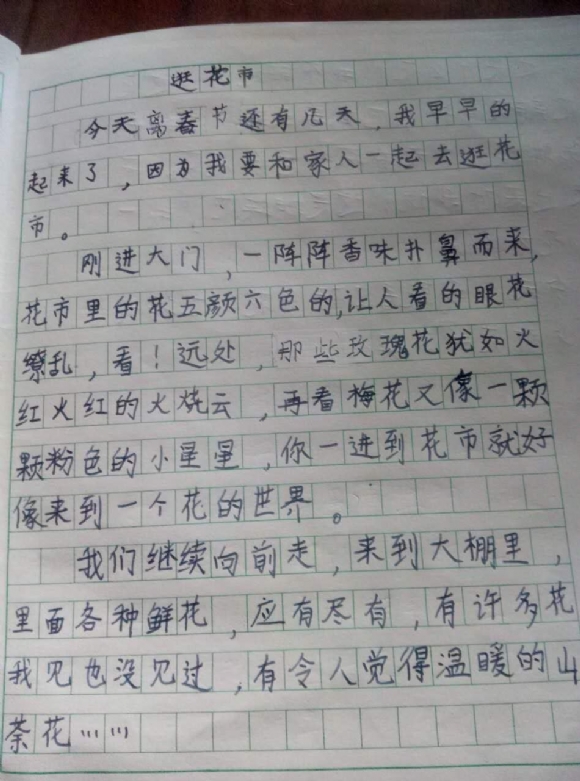 逛花市
今天离春节还有几天,我早早的
起来了,因为我要和家人一起去逛花
市。
刚进大门,一阵阵香味扑鼻而来,
花市里的花五颜六色的,让人看的眼花
缭乱,看!远处,那些玫瑰花犹如火
红火红的火烧云,再看梅花又像一颗
颗粉色的小星星,你一进到花市就好
像来到一个花的世界。
我们继续向前走,来到大棚里,
里面各种鲜花,应有尽有,有许多花
我见也没见过,有令人觉得温暖的山
茶花……